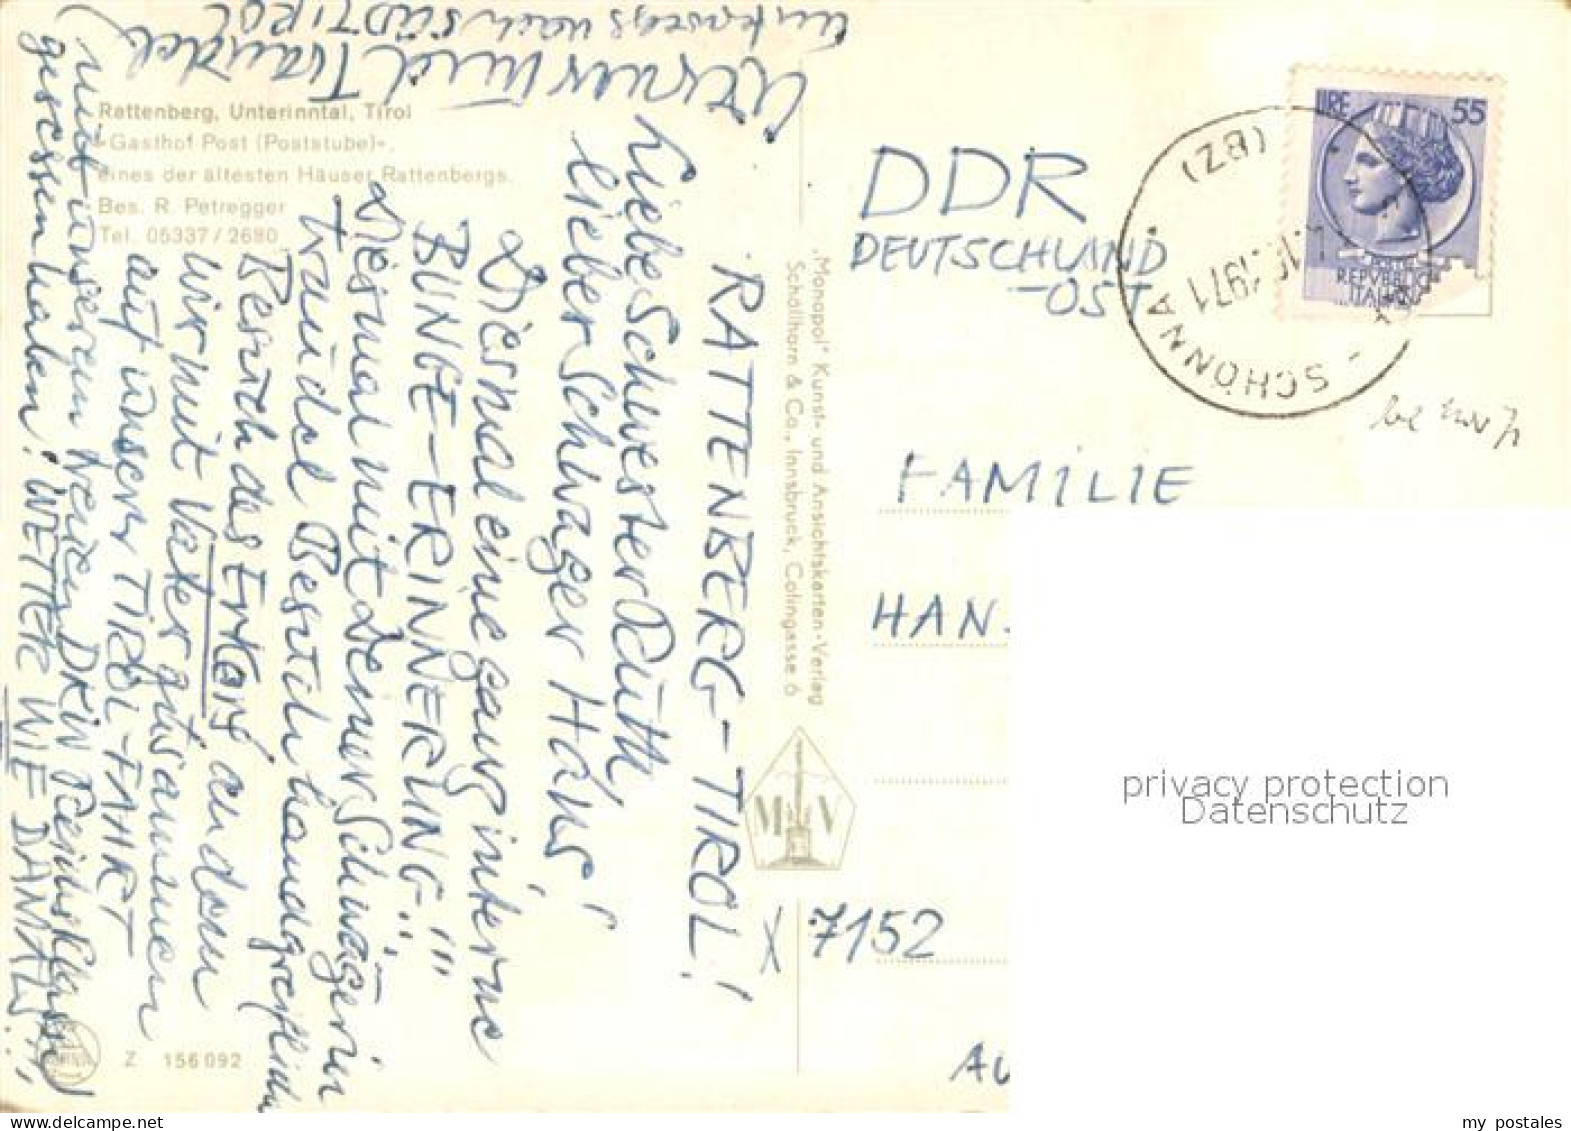 Rattenberg, Unterinntal, Tirol
»Gasthof Post (Poststube)«,
eines der ältesten Häuser Rattenbergs.
Bes. R. Petregger
Tel. 05337/2680
RATTENBERG-TIROL!
Liebe Schwester Ruth,
lieber Schwager Hans!
Diesmal eine ganz interne
BUNGE-ERINNERUNG!!!
Diesmal mit Deiner Schwägerin
Traudel Besuch
Besuch des Erkers an dem
wir mit Vater zusammen
auf unserer TIROL-FAHRT
mit unserem DKW Reichsklasse
gesessen haben! WETTER WIE DAMALS!!!
Werner und Traudel
unterwegs nach SÜDTIROL
"Monopol" Kunst- und Ansichtskarten-Verlag
Schöllhorn & Co., Innsbruck, Colingasse 6
M V
Z 156 092
LIRE 55
REPVBBLICA
ITALIANA
SCHÖNNA
(BZ)
1971
DDR
DEUTSCHLAND
-OST
FAMILIE
HAN
X 7152
AU
privacy protection
Datenschutz
my postales